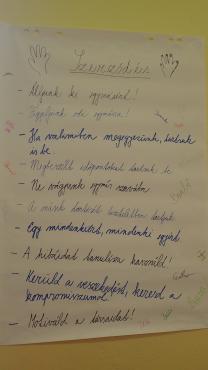 Szerződés
- Álljunk ki egymásért!
- Figyeljünk oda egymásra!
- Ha valamiben megegyezünk, tartsuk
is be.
- Megbeszélt időpontokat tartsuk be
- Ne vágjunk egymás szavába
- A másik tiszteletben tartjuk
- Egy mindenkiért, mindenki egyért
- A hibáidat tanulásra használd!
- Kerüld a veszekedést, keresd a
kompromisszumot.
- Motiváld a társaidat!